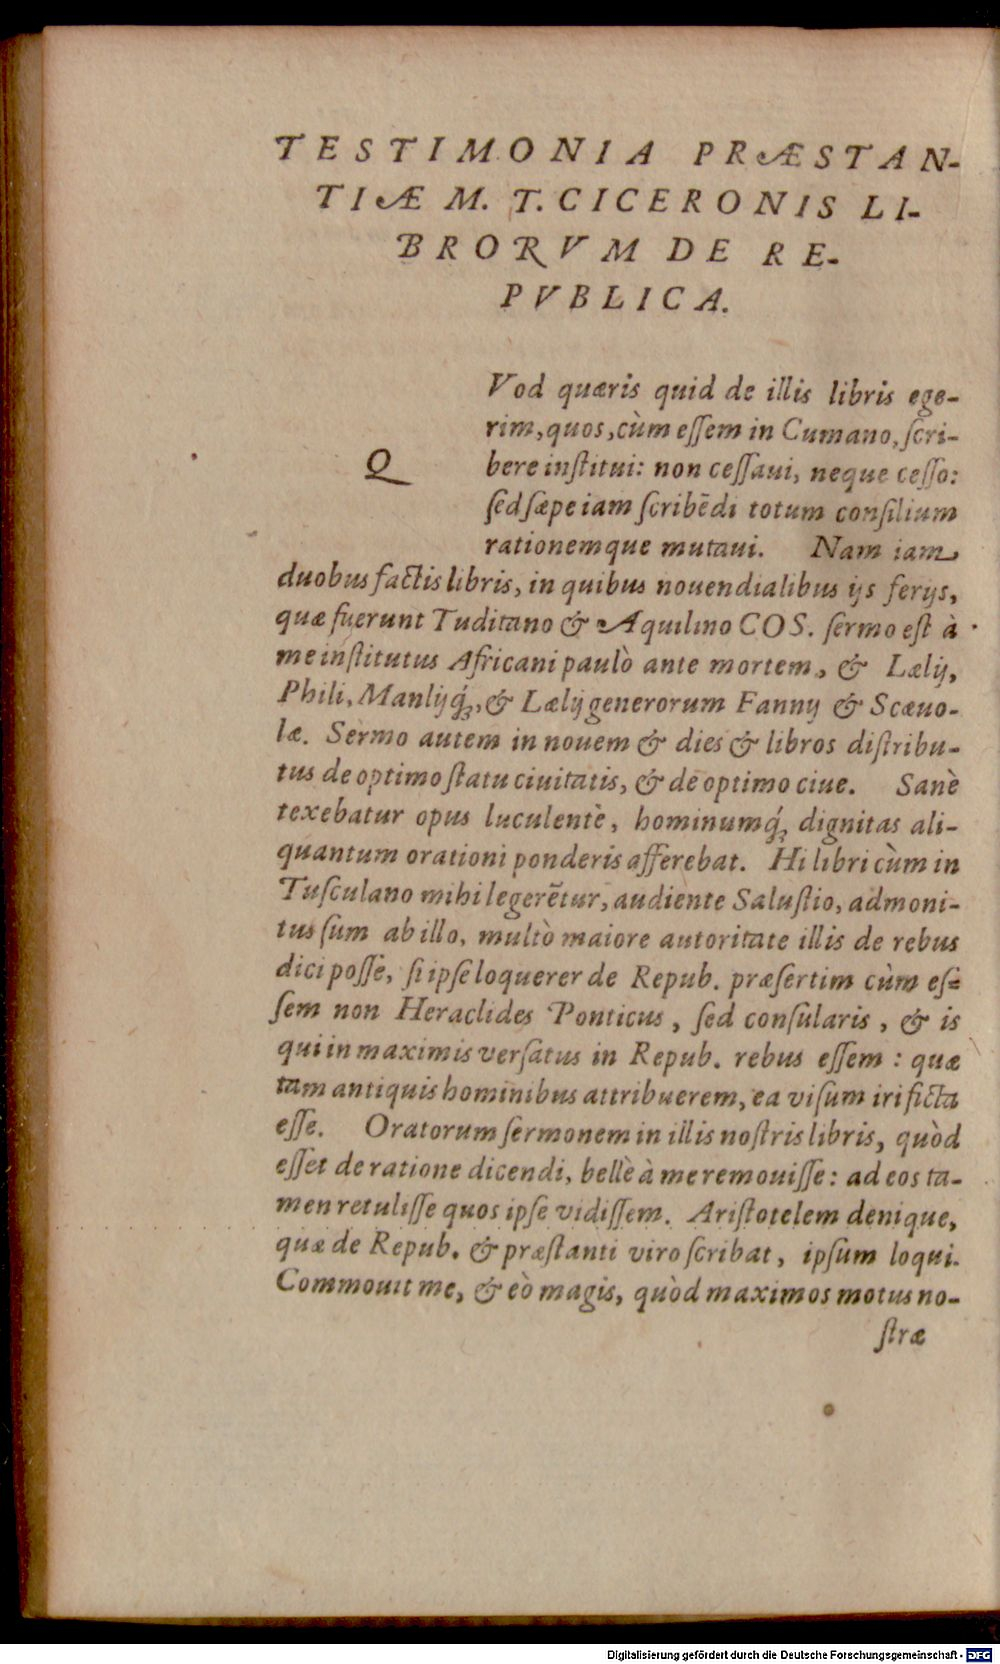 TESTIMONIA PRÆSTAN-
TIÆ M. T. CICERONIS LI-
BRORVM DE RE-
PVBLICA.
Q
Vod quæris quid de illis libris ege-
rim, quos, cùm eſſem in Cumano, ſcri-
bere inſtitui: non ceſſaui, neque ceſſo:
ſed ſæpe iam ſcribēdi totum conſilium
rationemque mutaui. Nam iam
duobus factis libris, in quibus nouendialibus ijs ferijs,
quæ fuerunt Tuditano & Aquilino COS. ſermo eſt à
me inſtitutus Africani paulò ante mortem, & Lælij,
Phili, Manlijq́;, & Lælij generorum Fannij & Scæuo-
læ. Sermo autem in nouem & dies & libros diſtribu-
tus de optimo ſtatu ciuitatis, & de optimo ciue. Sanè
texebatur opus luculentè, hominumq́; dignitas ali-
quantum orationi ponderis afferebat. Hi libri cùm in
Tuſculano mihi legerētur, audiente Saluſtio, admoni-
tus ſum ab illo, multò maiore autoritate illis de rebus
dici poſſe, ſi ipſe loquerer de Repub. præſertim cùm eſ-
ſem non Heraclides Ponticus, ſed conſularis, & is
qui in maximis verſatus in Repub. rebus eſſem: quæ
tam antiquis hominibus attribuerem, ea viſum iri ficta
eſſe. Oratorum ſermonem in illis noſtris libris, quòd
eſſet de ratione dicendi, bellè à me remouiſſe: ad eos ta-
men retuliſſe quos ipſe vidiſſem. Ariſtotelem denique,
quæ de Repub. & præſtanti viro ſcribat, ipſum loqui.
Commouit me, & eò magis, quòd maximos motus no-
ſtræ
Digitalisierung gefördert durch die Deutsche Forschungsgemeinschaft - DFG